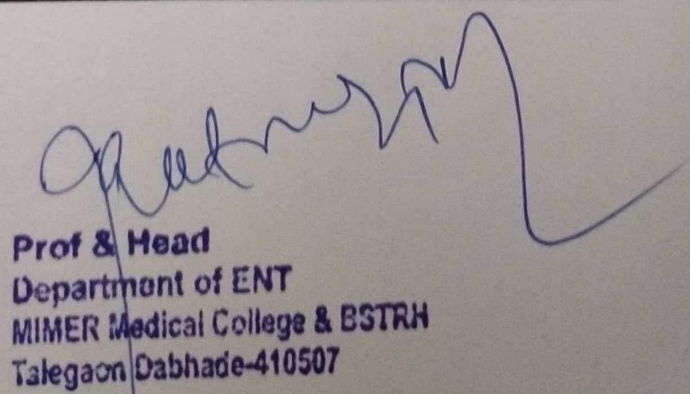 Prof & Head
Department of ENT
MIMER Medical College & BSTRH
Talegaon Dabhade-410507